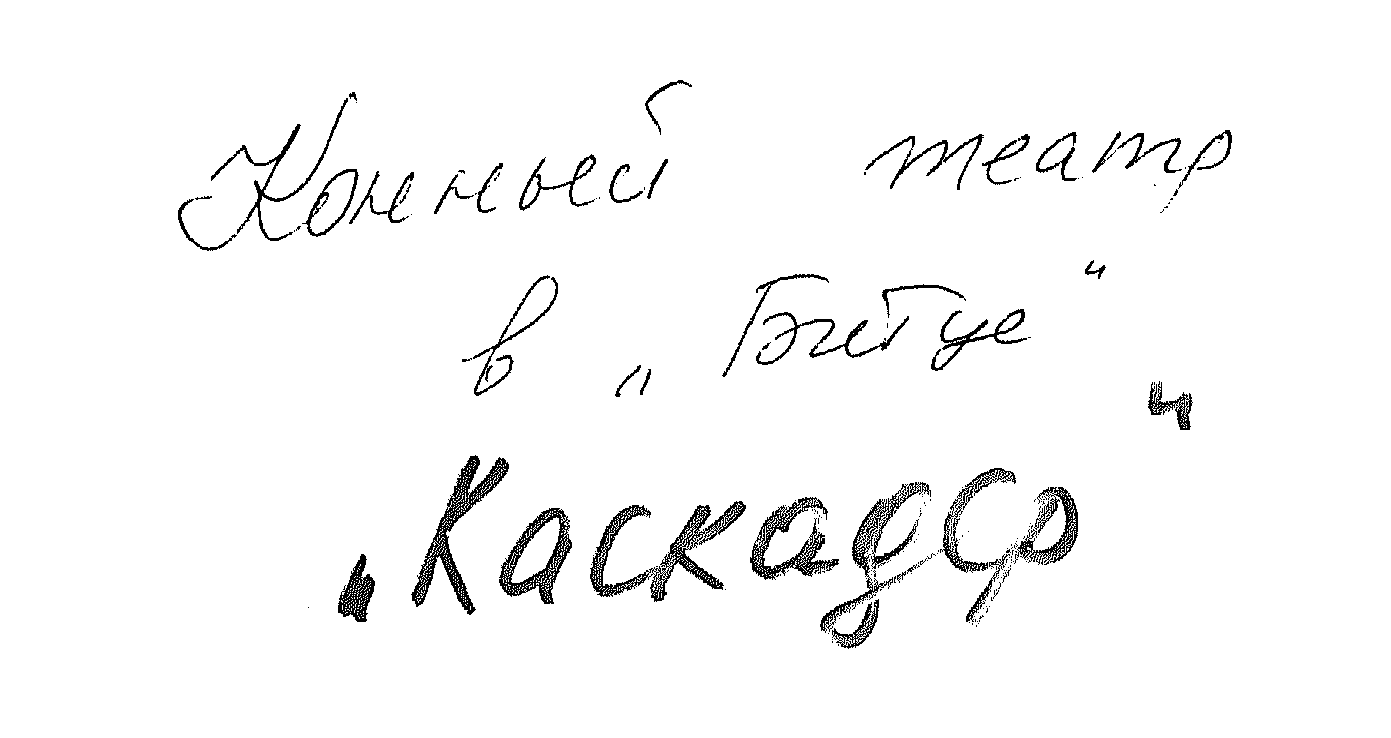 Конный театр
в „Битце“
„Каскадёр“